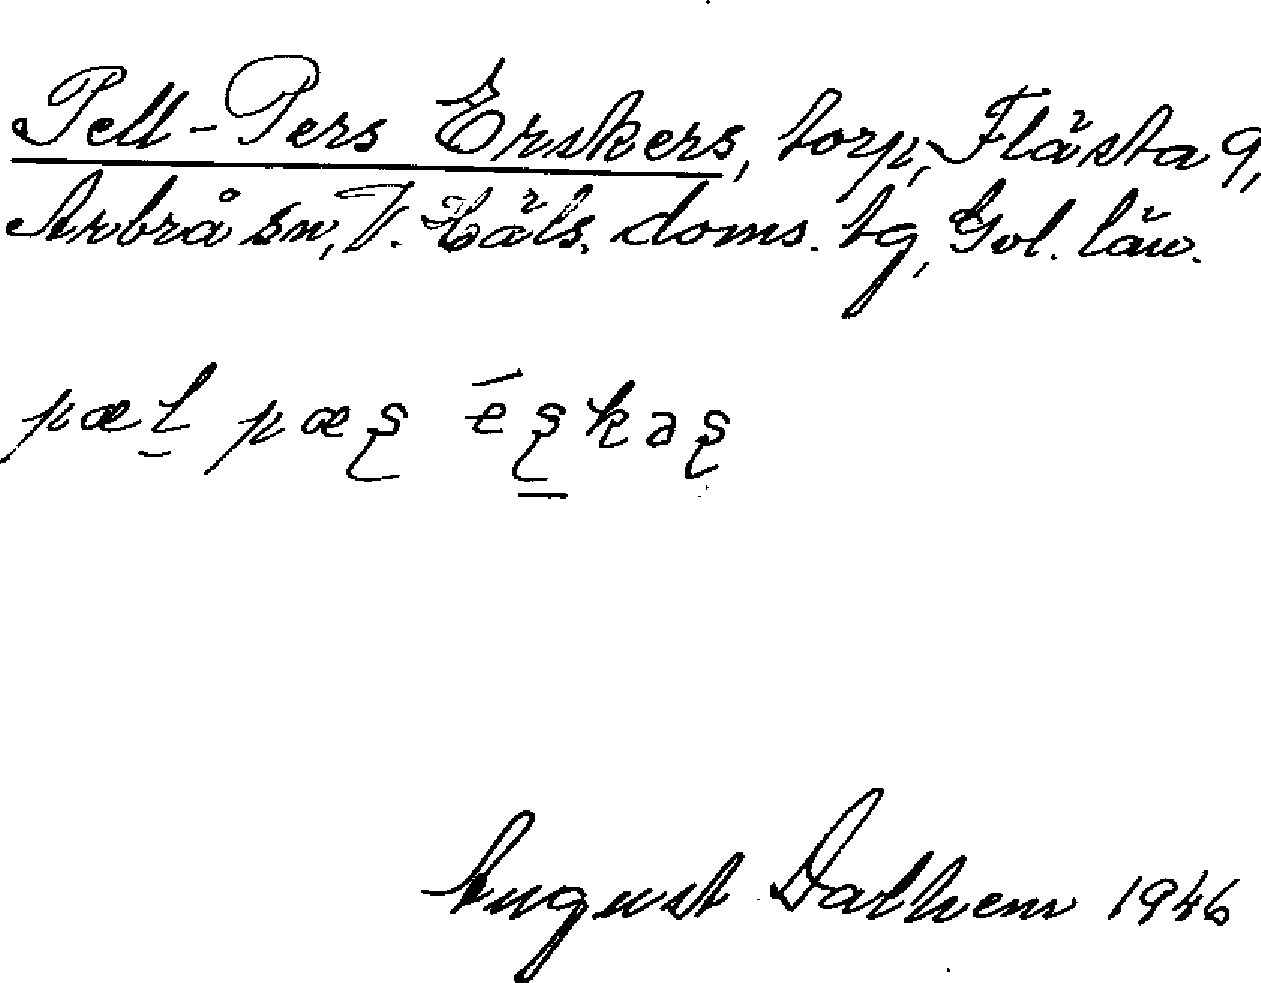 Pell-Pers Erskers, torp, Flästa 9,
Arbrå sn, V. Häls. doms. tg, Gvl. län.
pæl pæʂ éʂkəʂ
August Dalhem 1946